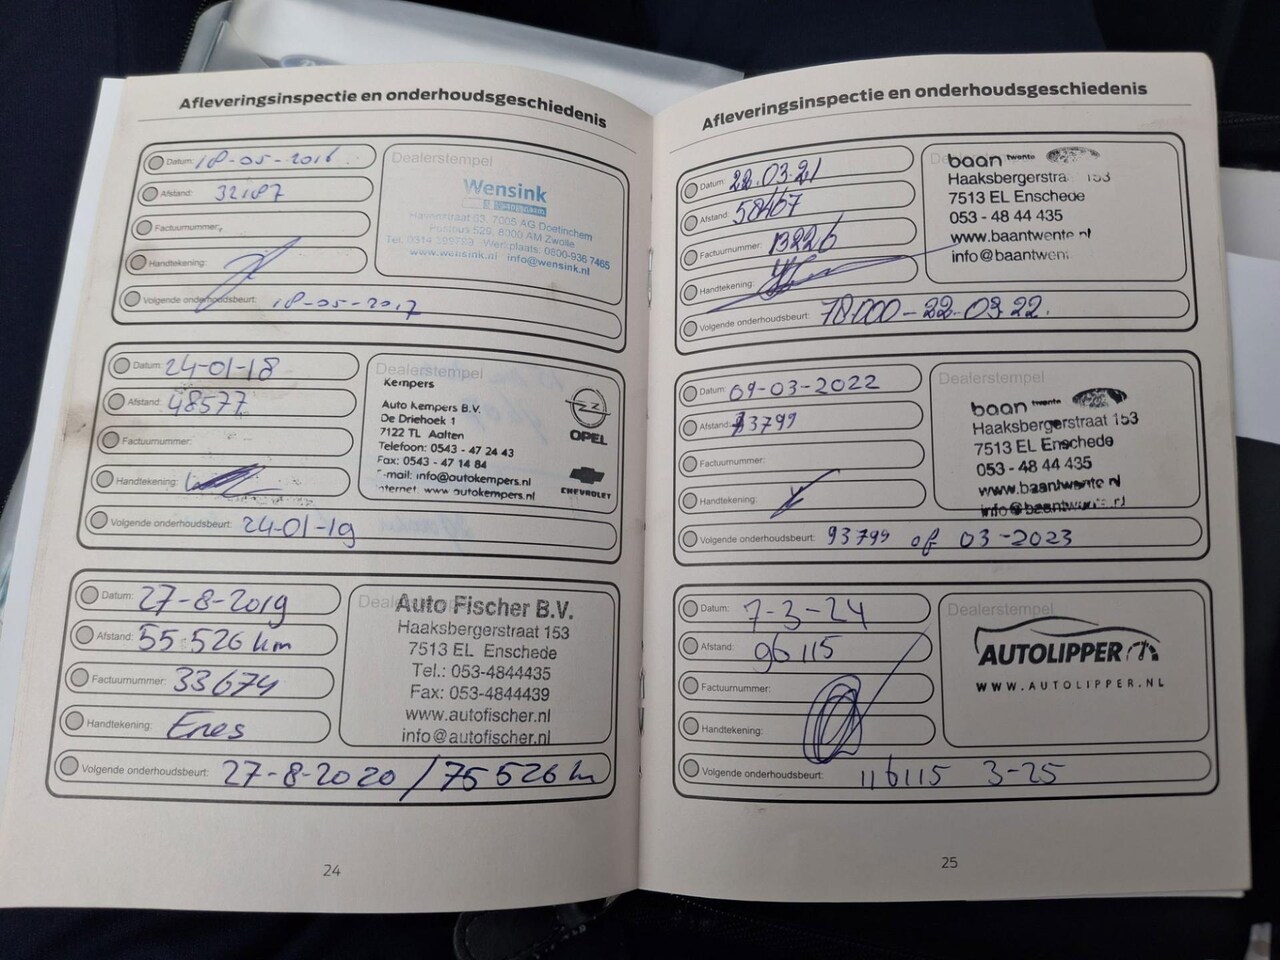 Afleveringsinspectie en onderhoudsgeschiedenis
Datum: 18-05-2016
Afstand: 32187
Factuurnummer:
Handtekening:
Volgende onderhoudsbeurt: 18-05-2017
Dealerstempel
Wensink
Havenstraat 63, 7005 AG Doetinchem
Postbus 529, 8000 AM Zwolle
Tel. 0314 Werkplaats: 0800-936 7465
www.wensink.nl info@wensink.nl
Datum: 24-01-18
Afstand: 48577
Factuurnummer:
Handtekening:
Volgende onderhoudsbeurt: 24-01-19
Dealerstempel
Kempers
Auto Kempers B.V.
De Driehoek 1
7122 TL Aalten
Telefoon: 0543 - 47 24 43
Fax: 0543 - 47 14 84
E-mail: info@autokempers.nl
Internet: www.autokempers.nl
OPEL
CHEVROLET
Datum: 27-8-2019
Afstand: 55 526 km
Factuurnummer: 33674
Handtekening: Enes
Volgende onderhoudsbeurt: 27-8-2020 / 75 526 km
Dealerstempel
Auto Fischer B.V.
Haaksbergerstraat 153
7513 EL Enschede
Tel.: 053-4844435
Fax: 053-4844439
www.autofischer.nl
info@autofischer.nl
24
Afleveringsinspectie en onderhoudsgeschiedenis
Datum: 22.03.21
Afstand: 58467
Factuurnummer: 13226
Handtekening:
Volgende onderhoudsbeurt: 78.000 - 22-03 22.
baan twente
Haaksbergerstraat 153
7513 EL Enschede
053 - 48 44 435
www.baantwente.nl
info@baantwen
Datum: 09-03-2022
Afstand: 73799
Factuurnummer:
Handtekening:
Volgende onderhoudsbeurt: 93799 of 03-2023
Dealerstempel
baan twente
Haaksbergerstraat 153
7513 EL Enschede
053 - 48 44 435
www.baantwente.nl
info@baantwente.nl
Datum: 7-3-24
Afstand: 96115
Factuurnummer:
Handtekening:
Volgende onderhoudsbeurt: 116115 3-25
Dealerstempel
AUTOLIPPER
WWW.AUTOLIPPER.NL
25